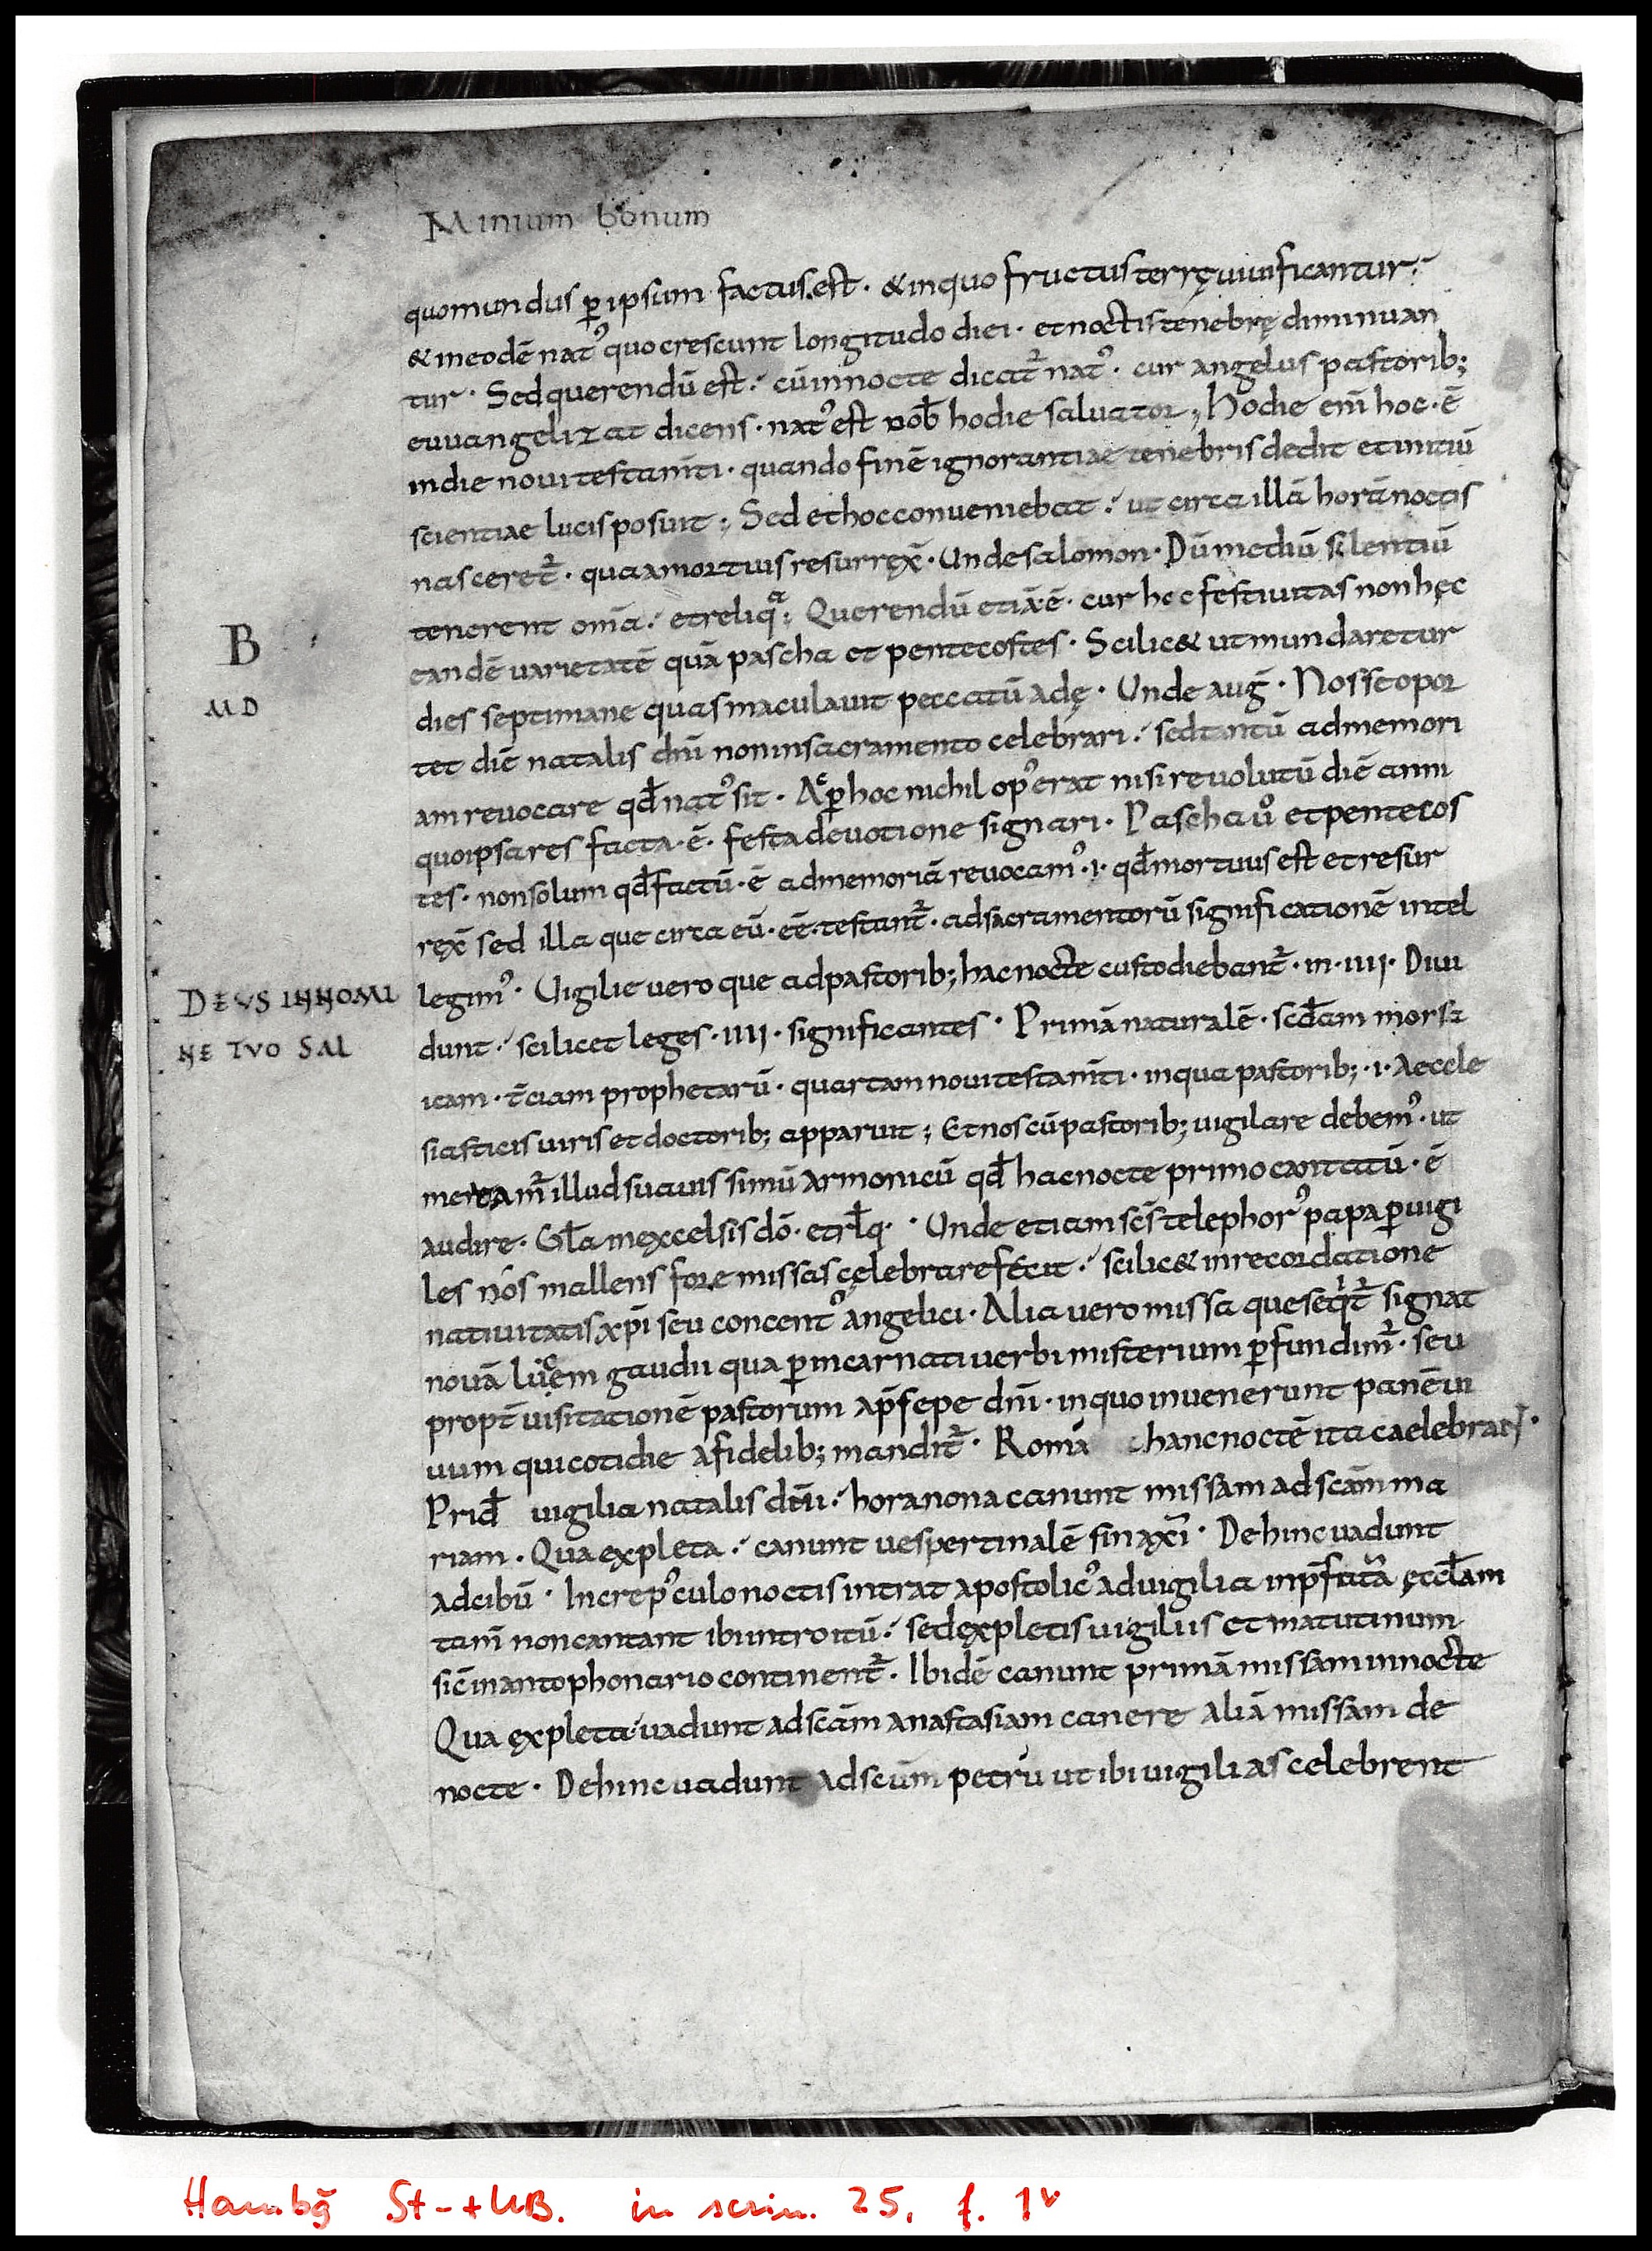 Minium bonum
quo mundus ꝑ ipsum factus est · & in quo fructus terrę uiuificantur ·
& in eodē nat᾿ quo crescunt longitudo diei · et noctis tenebrę diminuan
tur · Sed querendū est · cū in nocte dicat᷑ nat᾿ · cur angelus pastorib;
euuangelizat dicens · nat᾿ est nob̄ hodie saluator ; Hodie em̄ hoc · ē
in die noui testam̄ti · quando finē ignorantiae tenebris dedit et initiū
scientiae lucis posuit ; Sed et hoc conueniebat · ut circa illā horā noctis
nasceret᷑ · qua a mortuis resurrex̄ · Unde salomon · Dū mediū silentiū
tenerent om̄a · et reliqᵃ ; Querendū etiā ē · cur hec festiuitas non hęc
eandē uarietatē quā pascha et pentecostes · Scilic& ut mundaretur
B
dies septimane quas maculauit peccatū adę · Unde auḡ · Nosse opor
MD
tet diē natalis dn̄i non in sacramento celebrari · sed tantū ad memori
am reuocare qđ nat᾿ sit · Ac ꝑ hoc nichil op᾿ erat nisi reuolutū diē anni
quo ipsa res facta · ē · festa deuotione signari · Pascha uº et pentecos
tes · non solum qđ factū · ē ad memoriā reuocam᾿ · i · qđ mortuus est et resur
rex̄ sed illa que circa eū · eē · testant᷑ · ad sacramentorū significationē intel
legim᾿ · Uigilie uero que a dpastorib; hac nocte custodiebant᷑ · in · IIII · Diui
DEUS IN NOMI
dunt · scilicet leges · IIII · significantes · Primā naturalē · scđam morsa
NE TVO SAL
icam · t̄ciam prophetarū · quartam noui testam̄ti · in qua pastorib; · i · aeccle
siasticis uiris et doctorib; apparuit ; Et nos cū pastorib; uigilare debem᾿ · ut
meream᷑ illud suauissimū armonicū qđ hac nocte primo cantatū · ē
audire · Gl̄a in excelsis dō · et rl̄q · Unde etiam sc̄s telephor᾿ papa ꝑuigi
les nos mallens fore missas cęlebrare fecit · scilic& in recordatione
natiuitatis xp̄i seu concent᾿ angelici · Alia uero missa que seqⁱt᷑ signat
nouā lucem gaudii qua ꝑ incarnati uerbi misterium ꝑfundim᷑ · seu
propt̄ uisitationē pastorum ap̄sepe dn̄i · in quo inuenerunt panē ui
uum qui cotidie a fidelib; mandit᷑ · Roma hanc noctē ita caelebrat ·
Priđ uigilia natalis dn̄i · hora nona canunt missam ad sc̄am ma
riam · Qua expleta · canunt uespertinalē sinaxi · Dehinc uadunt
ad cibū · In crep᾿culo noctis intrat apostolic᾿ ad uigilia in p̄fatā ęccl̄am
tam̄ non cantant ibi introitū · sed expletis uigiliis et matutinum
sic̄ in antophonario continent᷑ · Ibidē canunt primā missam in nocte
Qua expleta · uadunt ad sc̄am anastasiam canere aliā missam de
nocte · Dehinc uadunt ad sc̄um petrū ut ibi uigilias celebrent
Hambg̃ St-+UB. in scrin. 25, f. 1ᵛ